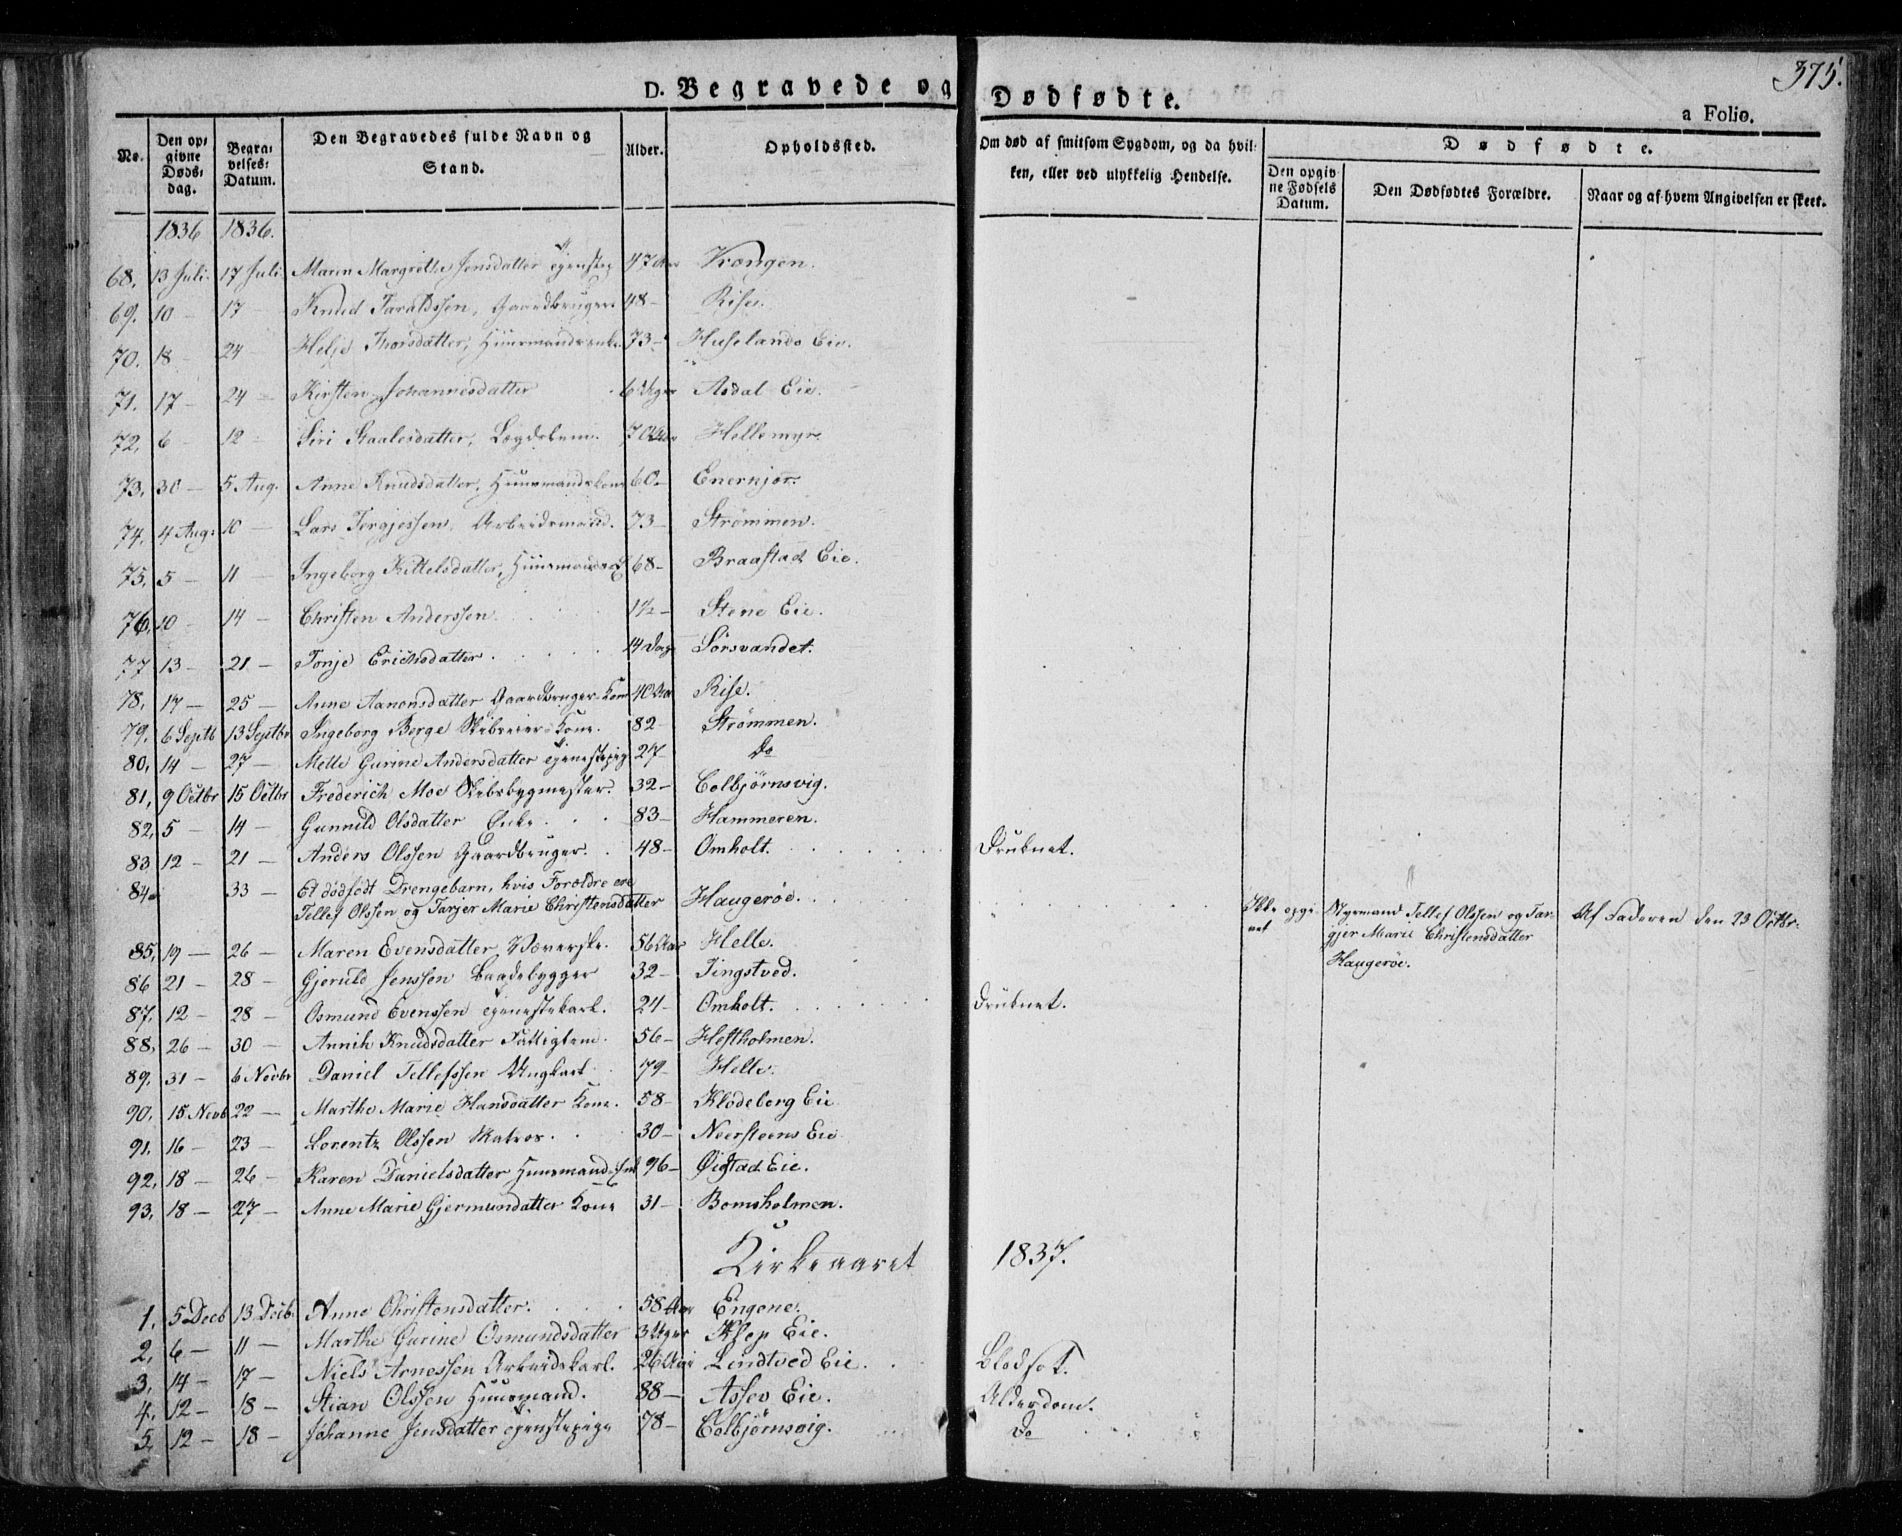 375.
D. Begravede og Dødfødte.
a Folio.
No. Den opgivne Dødsdag. Begravelses-Datum. Den Begravedes fulde Navn og Stand. Alder. Opholdssted. Om død af smitsom Sygdom, og da hvilken, eller ved ulykkelig Hendelse. Dødfødte.
Den opgivne Fødsels Datum. Den Dødfødtes Forældre. Naar og af hvem Angivelsen er skeet.
1836 1836.
68. 13 Juli. 17 Juli Maren Margrethe Jensdatter 47 Aar Vrængen.
69. 10 - 17 - Knud Taraldssen, Gaardbruger 48 - Rise.
70. 18 - 24 - Helje Thorsdatter, Huusmandsenke. 73 - Huselands Eie.
71. 17 - 24 - Kirsten Johannesdatter 6 Uger Asdal Eie.
72. 6 - 12 - Siri Staalesdatter, Lægdslem. 70 Aar Hellemyr.
73. 30 - 5 Aug. Anne Knudsdatter, Huusmandskone 60 - Enerkjær.
74. 4 Aug: 10 - Lars Tergjessen, Arbeidsmand. 73 - Strømmen.
75. 5 - 11 - Ingeborg Kittelsdatter, 68 - Braastad Eie.
76. 10 - 14 - Christen Anderssen. 1½ - Stene Eie.
77. 13 - 21 - Tonje Erichsdatter. 14 Dage Sörsvandet.
78. 17 - 25 - Anne Aanonsdatter Gaardbruger Kone 40 Aar Rise.
79. 6 Septb 13 Septbr Ingeborg Berge Skibseier Kone. 82 - Strømmen.
80. 14 - 27 - Mette Gurine Andersdatter Tjenestepig 27 - Do
81. 9 Octbr 15 Octbr Frederich Moe Skibsbygmester. 32 - Colbjørnsvig.
82. 5 - 14 - Gunnild Olsdatter Enke. 83 - Hammeren.
83. 12 - 21 - Anders Olssen Gaardbruger. 48 - Omholt. Druknet.
84. 33 - Et dødfødt Drengebarn, hvis Forældre ere
Tellef Olssen og Tarjer Marie Christensdatter Haugeröe. Ikke opgivet Styrmand Tellef Olssen og Targjer Marie Christensdatter Haugeröe. Af Faderen den 23 Octbr.
85. 19 - 26 - Maren Evensdatter Væverske. 56 Aar Helle.
86 21 - 28 - Gjeruld Jenssen Baadebygger 32 - Tingstved.
87. 12 - 28 - Osmund Evenssen Tjenestekarl. 24 - Omholt. Druknet.
88. 26 - 30 - Annih Knudsdatter Fattiglem. 56 - Hestholmen.
89. 31 - 6 Novbr Daniel Tellefssen Ungkarl 79 - Helle.
90. 15 Novb 22 - Marthe Marie Hansdatter Kone. 58 - Klodeborg Eie
91. 16 - 23 - Lorentz Olssen Matros. 30 - Neersteens Eie
92. 18 - 26 - Karen Danielsdatter Huusmands Enk 96 - Øigstad Eie.
93. 18 - 27 - Anne Marie Gjermundatter Kone 31 - Bomsholmen.
Kirkeaaret 1837.
1. 5 Decb 13 Decb. Anne Christensdatter. 58 Aar Engene.
2. 6 - 11 - Marthe Gurine Osmundsdatter 3 Uger Klep Eie.
3. 14 - 17 - Niels Arnessen Arbeidskarl. 26 Aar Lindtved Eie. Blodsot.
4. 12 - 18 - Stian Olssen Huusmand. 88 - Assev Eie. Alderdom.
5. 12 - 18 - Johanne Jensdatter Tjenstepige 78 - Colbjørnsvig. Do